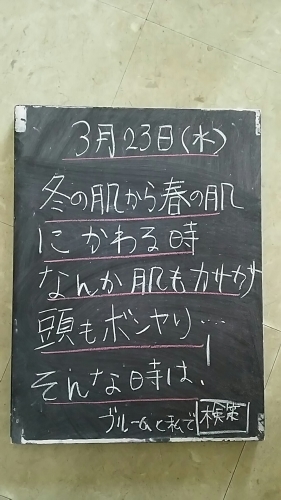 3月23日(水)
冬の肌から春の肌
にかわる時
なんか肌もカサカサ
頭もボンヤリ…
そんな時は、
ブルームと私で検索